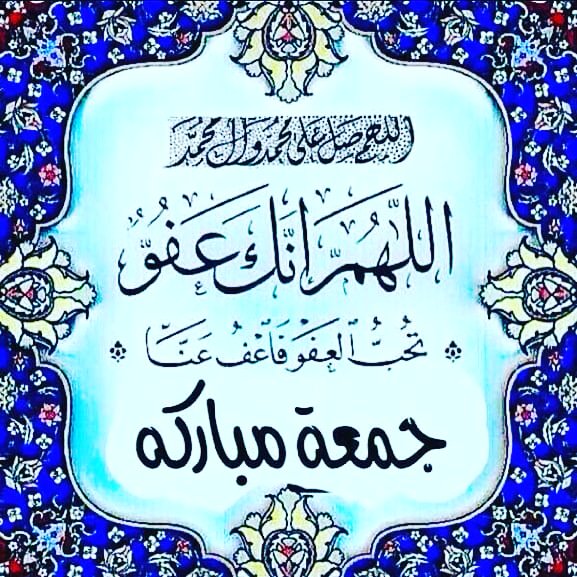 اللهم صل على محمد وال محمد
اللَّهُمَّ انَّكَ عَفُوٌّ
تُحِبُّ الْعَفْوَ فَاعْفُ عَنَّا
جمعة مباركه